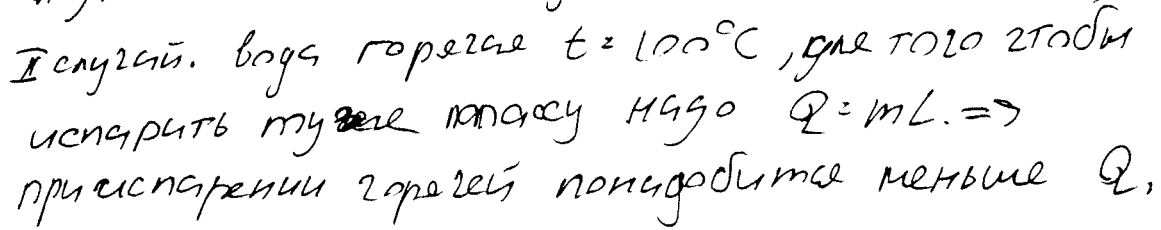 II случай. вода горячая t = 100°C, для того чтобы
испарить туже массу надо Q = mL. =>
при испарении горячей понадобится меньше Q.